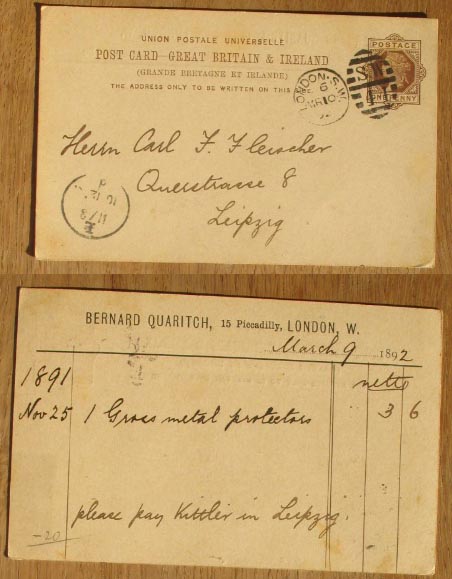 UNION POSTALE UNIVERSELLE
POST CARD - GREAT BRITAIN & IRELAND
(GRANDE BRETAGNE ET IRLANDE)
THE ADDRESS ONLY TO BE WRITTEN ON THIS
POSTAGE
ONE PENNY
LONDON·S.W.
6
MR10
S.W.
Herrn Carl F. Fleischer
Querstrasse 8
Leipzig
BERNARD QUARITCH, 15 Piccadilly, LONDON, W.
March 9 1892
1891 netto
Nov 25 1 Gross metal protectors 3 6
please pay Kittler in Leipzig.
-20